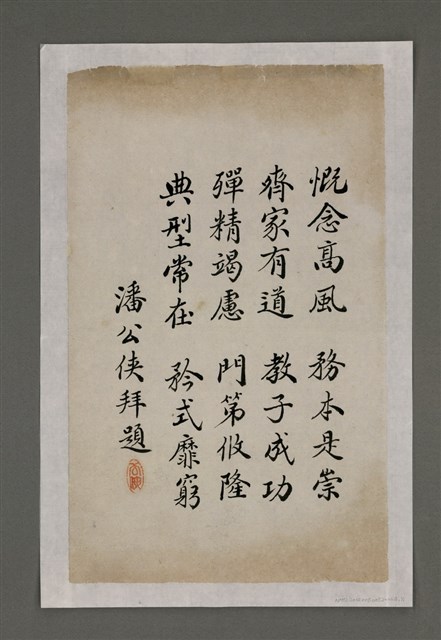 慨念高風　務本是崇
齊家有道　教子成功
殫精竭慮　門第攸隆
典型常在　矜式靡窮
潘公俠拜題